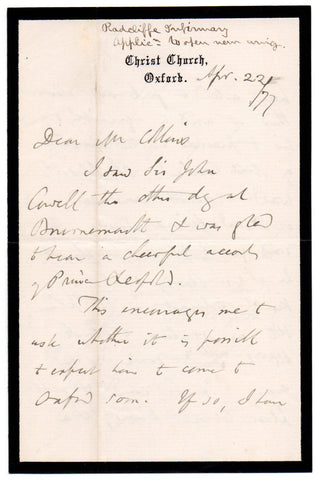 Radcliffe Infirmary
Applicn to open new wing.
Christ Church,
Oxford. Apr. 22/77
Dear Mr Collins
I saw Sir John
Cowell the other day at
Bournemouth & was glad
to hear a cheerful account
of Prince Leopold.
This encourages me to
ask whether it is possible
to expect him to come to
Oxford soon. If so, I have